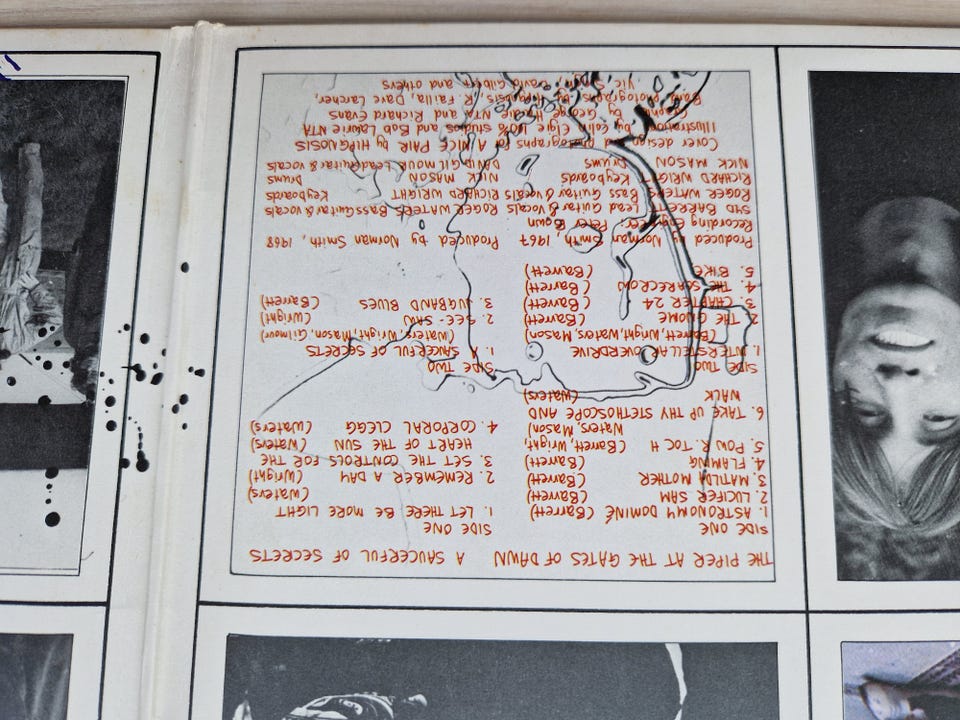 THE PIPER AT THE GATES OF DAWN
SIDE ONE
1. ASTRONOMY DOMINÉ (Barrett)
2. LUCIFER SAM (Barrett)
3. MATILDA MOTHER (Barrett)
4. FLAMING (Barrett)
5. POW R. TOC H (Barrett, Wright,
Waters, Mason)
6. TAKE UP THY STETHOSCOPE AND
WALK (Waters)
SIDE TWO
1. INTERSTELLAR OVERDRIVE
(Barrett, Wright, Waters, Mason)
2. THE GNOME (Barrett)
3. CHAPTER 24 (Barrett)
4. THE SCARECROW (Barrett)
5. BIKE (Barrett)
Produced by Norman Smith, 1967
Recording Engineer: Peter Bown
SYD BARRETT Lead Guitar & vocals
ROGER WATERS Bass Guitar & vocals
RICHARD WRIGHT Keyboards
NICK MASON Drums
A SAUCERFUL OF SECRETS
SIDE ONE
1. LET THERE BE MORE LIGHT
(Waters)
2. REMEMBER A DAY (Wright)
3. SET THE CONTROLS FOR THE
HEART OF THE SUN (Waters)
4. CORPORAL CLEGG (Waters)
SIDE TWO
1. A SAUCERFUL OF SECRETS
(Waters, Wright, Mason, Gilmour)
2. SEE-SAW (Wright)
3. JUGBAND BLUES (Barrett)
Produced by Norman Smith, 1968
ROGER WATERS Bass Guitar & vocals
RICHARD WRIGHT Keyboards
NICK MASON Drums
DAVID GILMOUR Lead Guitar & vocals
Cover design and photographs for A NICE PAIR by HIPGNOSIS
Illustrations by Colin Elgie 100% studios and Bob Lawrie NTA
Graphics by George Hardie NTA and Richard Evans
Band photographs by Hipgnosis, R. Failla, Dave Larcher,
Vic Singh, David Gilbert and others